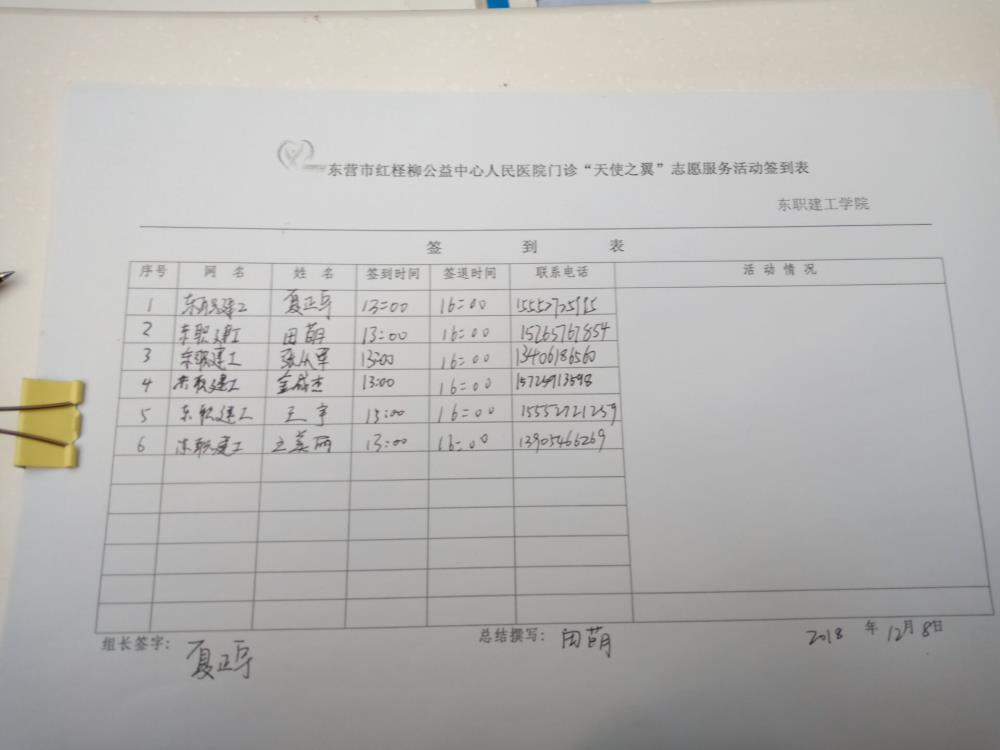 东营市红柽柳公益中心人民医院门诊“天使之翼”志愿服务活动签到表
东职建工学院
签 到 表
序号 网 名 姓 名 签到时间 签退时间 联系电话 活 动 情 况
1 东职建工 夏正宇 13:00 16:00
2 东职建工 田萌 13:00 16:00 15265767854
3 东职建工 张从军 13:00 16:00 13406186560
4 东职建工 13:00 16:00 15725913598
5 东职建工 王宇 13:00 16:00 15552721259
6 东职建工 王美丽 13:00 16:00 13905466269
组长签字: 夏正宇 总结撰写: 田萌 2018 年 12月 8日